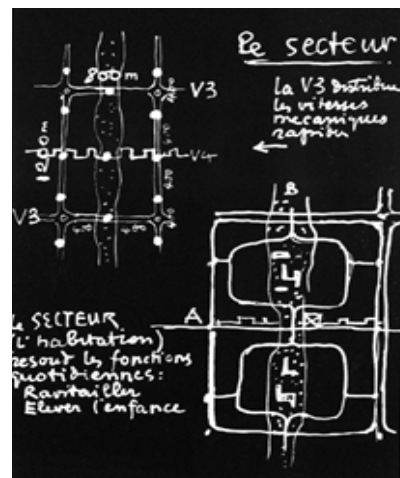 Le secteur
800 m
V3
la V3 distribue
les vitesses
mecaniques
rapides
1200 m
V4
400
V3
400
400
B
A
le SECTEUR
(l'habitation)
resout les fonctions
quotidiennes:
Ravitailler
Elever l'enfance